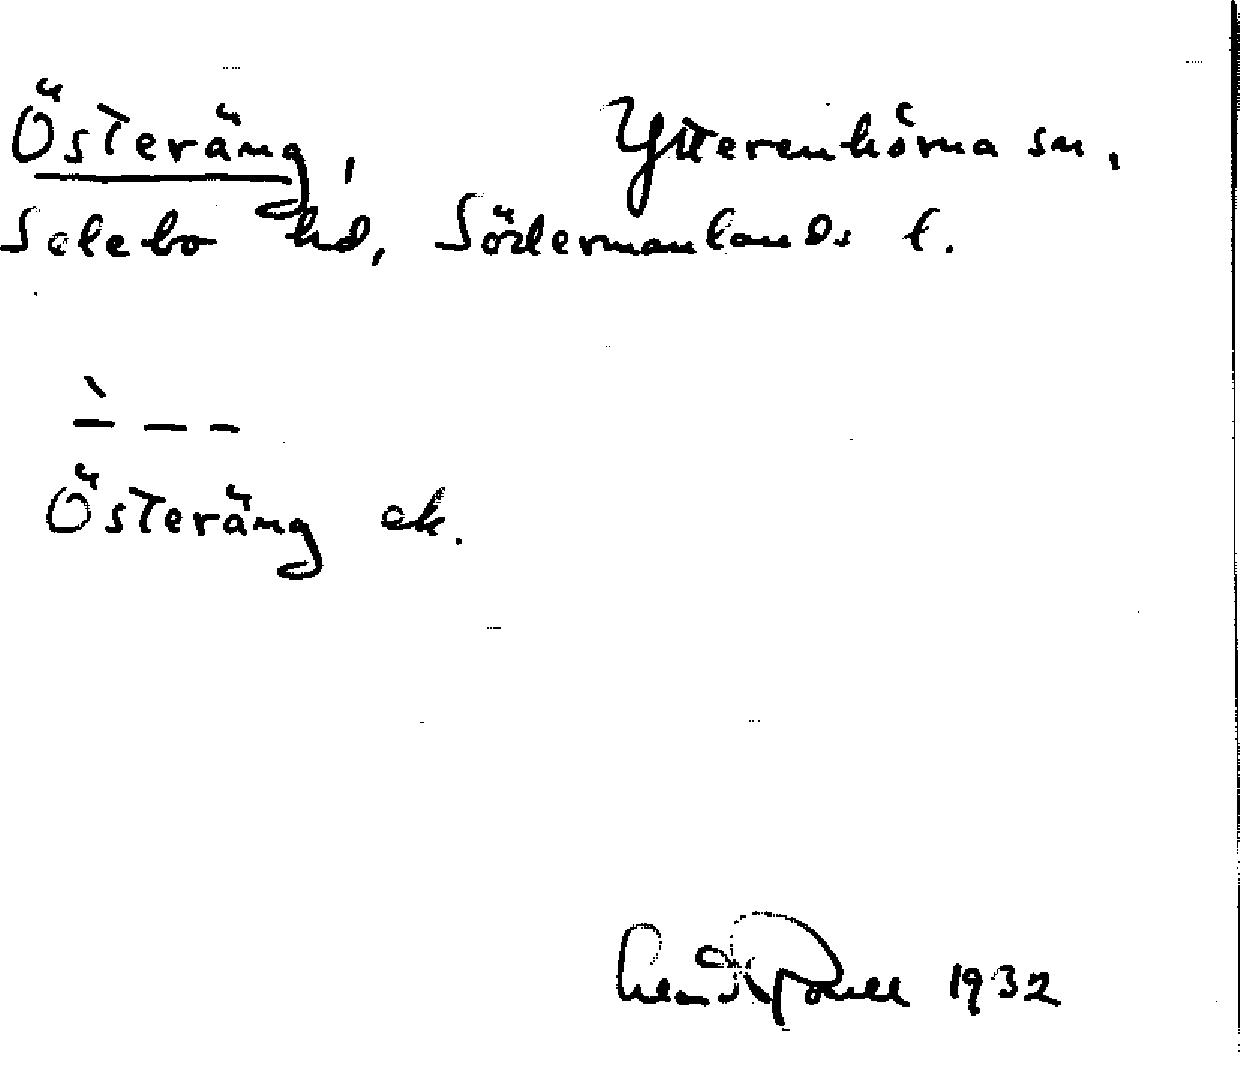 Österäng, Ytterenhörna sn.
Selebo hd, Södermanlands l.
Österäng ek.
1932